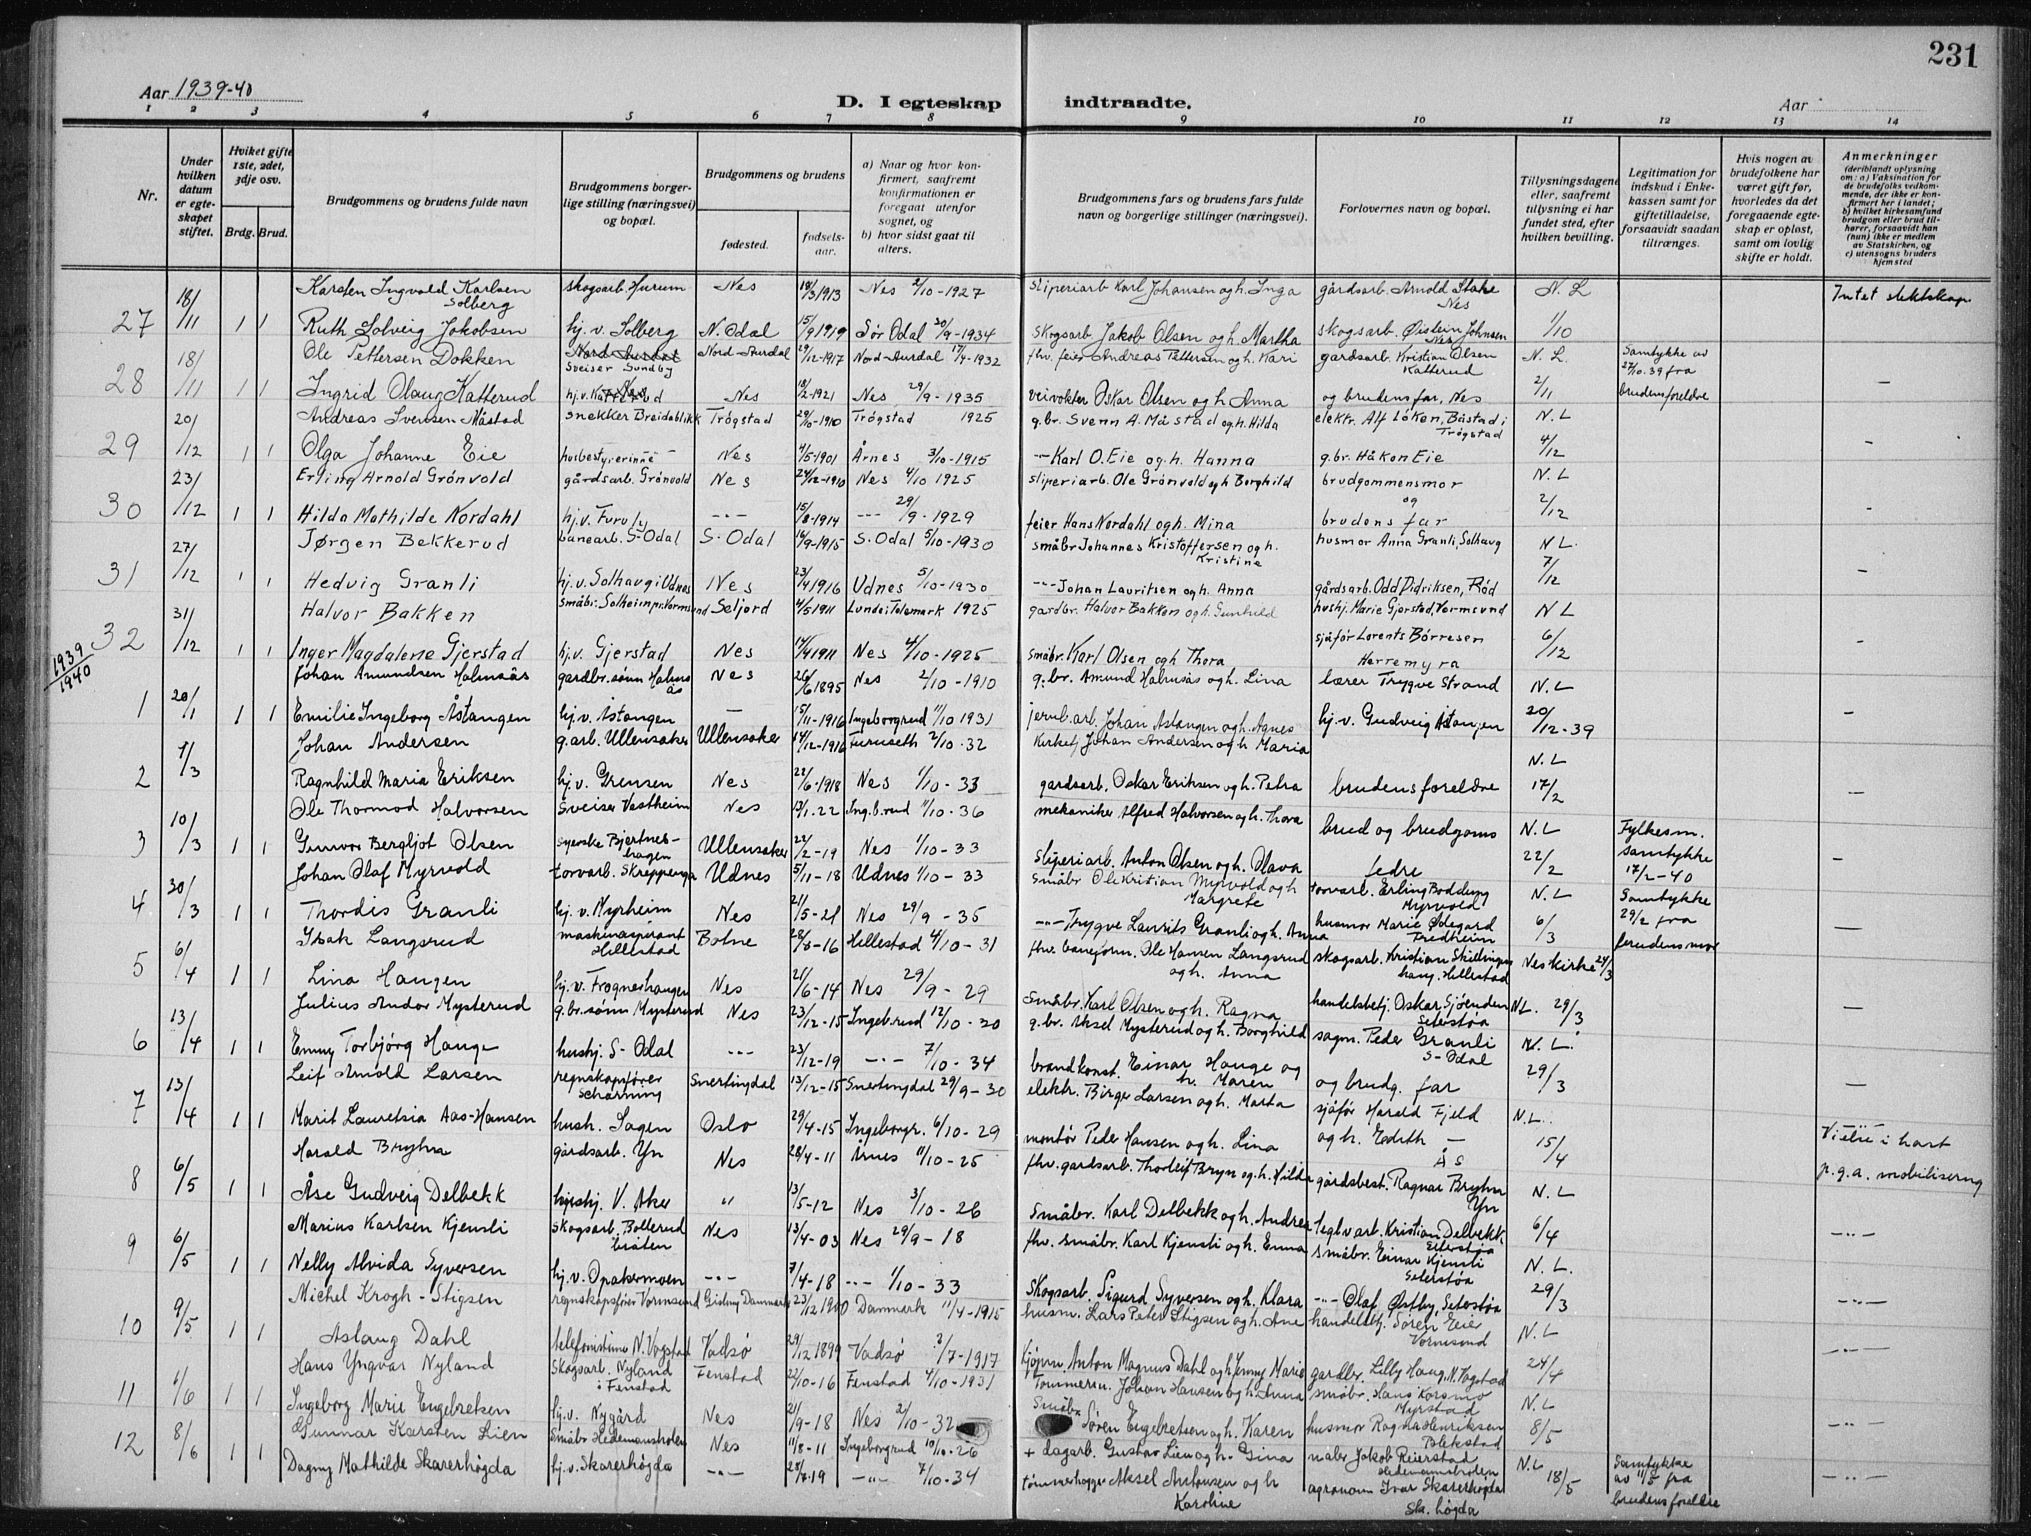 231
Aar 1939-40
D. I egteskap indtraadte.
Aar
1 2 3 4 5 6 7 8 9 10 11 12 13 14
Nr.
Under hvilken datum er egteskapet stiftet.
Hviket gifte 1ste, 2det, 3dje osv.
Brdg. Brud.
Brudgommens og brudens fulde navn
Brudgommens borgerlige stilling (næringsvei) og bopæl.
Brudgommens og brudens
fødested.
fødselsaar.
a) Naar og hvor konfirmert, saafremt konfirmationen er foregaat utenfor sognet, og
b) hvor sidst gaat til alters.
Brudgommens fars og brudens fars fulde navn og borgerlige stillinger (næringsvei).
Forlovernes navn og bopæl.
Tillysningsdagene eller, saafremt tillysning ei har fundet sted, efter hvilken bevilling.
Legitimation for indskud i Enkekassen samt for giftetilladelse, forsaavidt saadan tiltrænges.
Hvis nogen av brudefolkene har været gift før, hvorledes da det foregaaende egteskap er opløst, samt om lovlig skifte er holdt.
Anmerkninger
(deriblandt oplysning om: a) Vaksination for de brudefolks vedkommende, der ikke er konfirmert her i landet; b) hvilket kirkesamfund brudgom eller brud tilhører, forsaavidt han (hun) ikke er medlem av Statskirken, og c) utensogns bruders hjemsted
27 18/11 1 1 Karsten Ingvald Karlsen Solberg skogsarb. Hurum Nes 18/3 1913 Nes 2/10-1927 sliperiarb Karl Johansen og h. Inga gårdsarb. Arnold Stake Nes N. L Intet slektskap
Ruth Solveig Jakobsen hj. v. Solberg N. Odal 15/9 1919 Sør Odal 30/9-1934 skogsarb. Jakob Olsen og h. Martha skogsarb. Øistein Johnsen Nes 1/10
28 18/11 1 1 Ole Pettersen Dokken Nord-Aurdal Sveiser Sundby Nord-Aurdal 29/12-1917 Nord-Aurdal 17/4-1932 fhv. feier Andreas Pettersen og h. Kari gardsarb. Kristian Olsen Katterud N. L. Samtykke av 27/10.39 fra
Ingrid Olaug Katterud hj.v. Katterud Nes 18/2-1921 Nes 29/9-1935 veivokter Oskar Olsen og h. Anna og brudens far, Nes 2/11 brudens foreldre
29 20/12 1 1 Andreas Svensen Måstad snekker Breidablikk Trøgstad 29/10-1910 Trøgstad 1925 g.br. Svenn A. Måstad og h. Hilda elektr. Alf Løken, Båstad i Trøgstad N. L
Olga Johanne Eie husbestyrerinne Nes 4/5-1901 Årnes 3/10-1915 -"- Karl O. Eie og h. Hanna g.br. Håkon Eie 4/12
30 23/12 1 1 Erling Arnold Grønvold gårdsarb. Grønvold Nes 24/12-1910 Nes 4/10 1925 sliperiarb. Ole Grønvold og h Borghild brudgommens mor og N. L
Hilda Mathilde Nordahl hj. v. Furuly -"- 15/8-1914 -"- 29/9-1929 feier Hans Nordahl og h. Mina brudens far 2/12
31 27/12 1 1 Jørgen Bekkerud banearb. S-Odal S. Odal 16/9-1915 S. Odal 5/10-1930 småbr Johannes Kristoffersen og h. Kristine husmor Anna Granli, Solhaug N L.
Hedvig Granli hj. v. Solhaug i Udnes Nes 23/4 1916 Udnes 5/10-1930 -"- Johan Lauritsen og h. Anna gårdsarb. Odd Didriksen, Rød 7/12
32 31/12 1 1 Halvor Bakken småbr. Solheim pr. Vormsund Seljord 4/5 1911 Lunde i Telemark 1925 gardbr. Halvor Bakken og h. Gunhild hushj. Marie Gjerstad, Vormsund N L
Inger Magdalene Gjerstad hj. v. Gjerstad Nes 14/4 1911 Nes 4/10-1925 småbr. Karl Olsen og h Thora sjåfør Lorents Børresen Herremyra 6/12
1939/1940
1 20/1 1 1 Johan Amundsen Halmsås gardbr. sønn Halmsås Nes 26/6 1895 Nes 2/10-1910 g.br. Amund Halmsås og h. Lina lærer Trygve Strand N. L
Emilie Ingeborg Åstangen hj. v. Åstangen — 15/11-1916 Ingeborgrud 11/10 1931 jernb.arb. Johan Åstangen og h. Agnes hj. v. Gudveig Åstangen 20/12-39
2 1/3 Johan Andersen g.arb. Ullensaker Ullensaker 14/12-1916 Furuseth 2/10.32 Kirketj Johan Andersen og h. Maria N. L
Ragnhild Maria Eriksen hj. v. Grensen Nes 22/6-1918 Nes 1/10-33 gardsarb. Oskar Eriksen og h. Petra brudens foreldre 17/2
3 10/3 1 1 Ole Thormod Halvorsen Sveiser Vestheim Nes 13/1.22 Ing.b.rud 11/10-36 mekaniker Alfred Halvorsen og h. Thora brud og brudgoms N. L Fylkesm. samtykke
Gunvor Bergljot Olsen syerske Bjertneshagen Ullensaker 22/2-19 Nes 1/10-33 Sliperiarb. Anton Olsen og h. Olava fedre 22/2 17/2-40
4 30/3 1 1 Johan Olaf Myrvold torvarb. Skreppenga Udnes 5/11-18 Udnes 1/10-33 Småbr Ole Kristian Myrvold og h Margrete torvarb. Erling Bodding Myrvold N. L Samtykke
Thordis Granli hj. v. Myrheim Nes 21/5-21 Nes 29/9-35 -"- Trygve Laurits Granli og h. Anna husmor Marie Ødegard Fredheim 6/3 29/2 fra brudens mor
5 6/4 1 1 Isak Langsrud maskinaspirant Hillestad Botne 28/8-16 Hillestad 4/10-31 fhv. baneform. Ole Hansen Langsrud og h. Anna skogsarb. Kristian Skillinghaug, Hillestad Nes kirke 24/3
Lina Haugen hj. v. Frognerhaugen Nes 21/6-14 Nes 29/9-29 Småbr. Karl Olsen og h. Ragna handelsbetj. Oskar Sjøenden Seterstøa N L. 29/3
6 13/4 1 1 Julius Andor Mysterud g.br.sønn Mysterud Nes 23/12-15 Ingeb.rud 12/10-30 g.br. Aksel Mysterud og h. Borghild sagm. Peder Granli S-Odal N. L.
Emmy Torbjørg Hauge hushj. S-Odal -"- 23/12-19 -"- 7/10-34 brandkonst. Einar Hauge og h. Maren og brudg. far 29/3
7 13/4 1 1 Leif Arnold Larsen regnskapsfører Scharning Snertingdal 13/12-15 Snertingdal 29/9-30 elektr. Birger Larsen og h. Marta sjåfør Harald Fjeld N. L.
Marit Lauretsia Aas-Hansen hush. Sagen Oslo 29/4-15 Ingeborgr. 6/10-29 montør Peder Hansen og h. Lina og h. Edith — Ås 15/4 Viele i hast
8 6/5 1 1 Harald Bryhn gårdsarb. Yn Nes 28/4-11 Årnes 11/10-25 fhv. gardsarb. Thorleif Bryn og h. Hilda gårdsbest. Ragnar Bryhn Yn N. L p.g.a. mobilisering
Åse Gudveig Delbekk hushj. V. Aker " 13/5-12 Nes 3/10-26 Småbr. Karl Delbekk og h. Andrea teglv arb. Kristian Delbekk Seterstøa 6/4
9 6/5 1 1 Marius Karlsen Kjensli skogsarb. Bollerudbråten Nes 13/4-03 Nes 29/9-18 fhv. småbr. Karl Kjensli og h. Emma småbr. Einar Kjensli Seterstøa N. L.
Nelly Alvida Syversen hj. v. Opakermoen -"- 7/4-18 -"- 1/10-33 Skogsarb. Sigurd Syversen og h. Klara -"- Olaf Østby, Seterstøa 29/3
10 9/5 1 1 Michel Krogh-Stigsen regnskapsfører Vormsund Danmark 23/12 1900 Danmark 11/4-1915 husm. Lars Peter Stigsen og h. Ane handelsbtj. Søren Eier Vormsund N. L
Aslaug Dahl telefonistinne N. Vogstad Vadsø 29/12 1899 Vadsø 2/7-1917 Anton Magnus Dahl og h Jenny Marie gardbr. Lilly Haug, N. Vogstad 24/4
11 1/6 1 1 Hans Yngvar Nyland Skogsarb. Nyland i Fenstad Fenstad 22/10-16 Fenstad 4/10-1931 Tømmerm. Johan Hansen og h. Anna småbr. Hans Korsmo Myrstad N. L
Ingeborg Marie Engebretsen hj. v. Nygård Nes 21/9-18 Nes 2/10-32 Småbr. Søren Engebretsen og h. Karen husmor Ragna Henriksen Blekstad 8/5
12 8/6 1 1 Gunnar Karsten Lien Småbr Hedemansholen Nes 11/8-11 Ingeborgrud 10/10-26 + dagarb. Gustav Lien og h. Gina maler Jakob Reierstad Hedemannsholen N. L Samtykke av 11/5 fra
Dagny Mathilde Skarerhøgda hj. v. Skarerhøgda -"- 28/7.19 -"- 7/10-34 tømmerhogger Aksel Antonsen og h Karoline agronom Ivar Skarerhøgda Sk. høgda 18/5 brudens foreldre